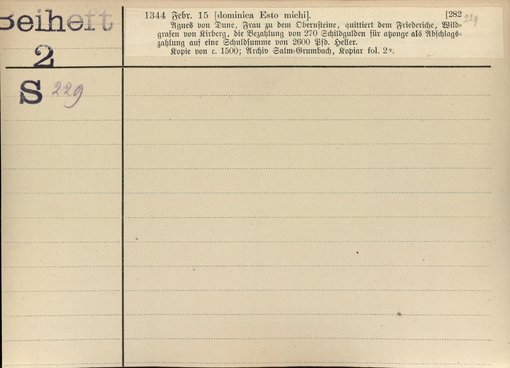 Beiheft
2
S 229
1344 Febr. 15 [dominica Esto michi]. [282 229
Agnes von Dune, Frau zu dem Obernsteine, quittiert dem Friederiche, Wild-
grafen von Kirberg, die Bezahlung von 270 Schildgulden für atzonge als Abschlags-
zahlung auf eine Schuldsumme von 2600 Pfd. Heller.
Kopie von c. 1500; Archiv Salm-Grumbach, Kopiar fol. 2v.